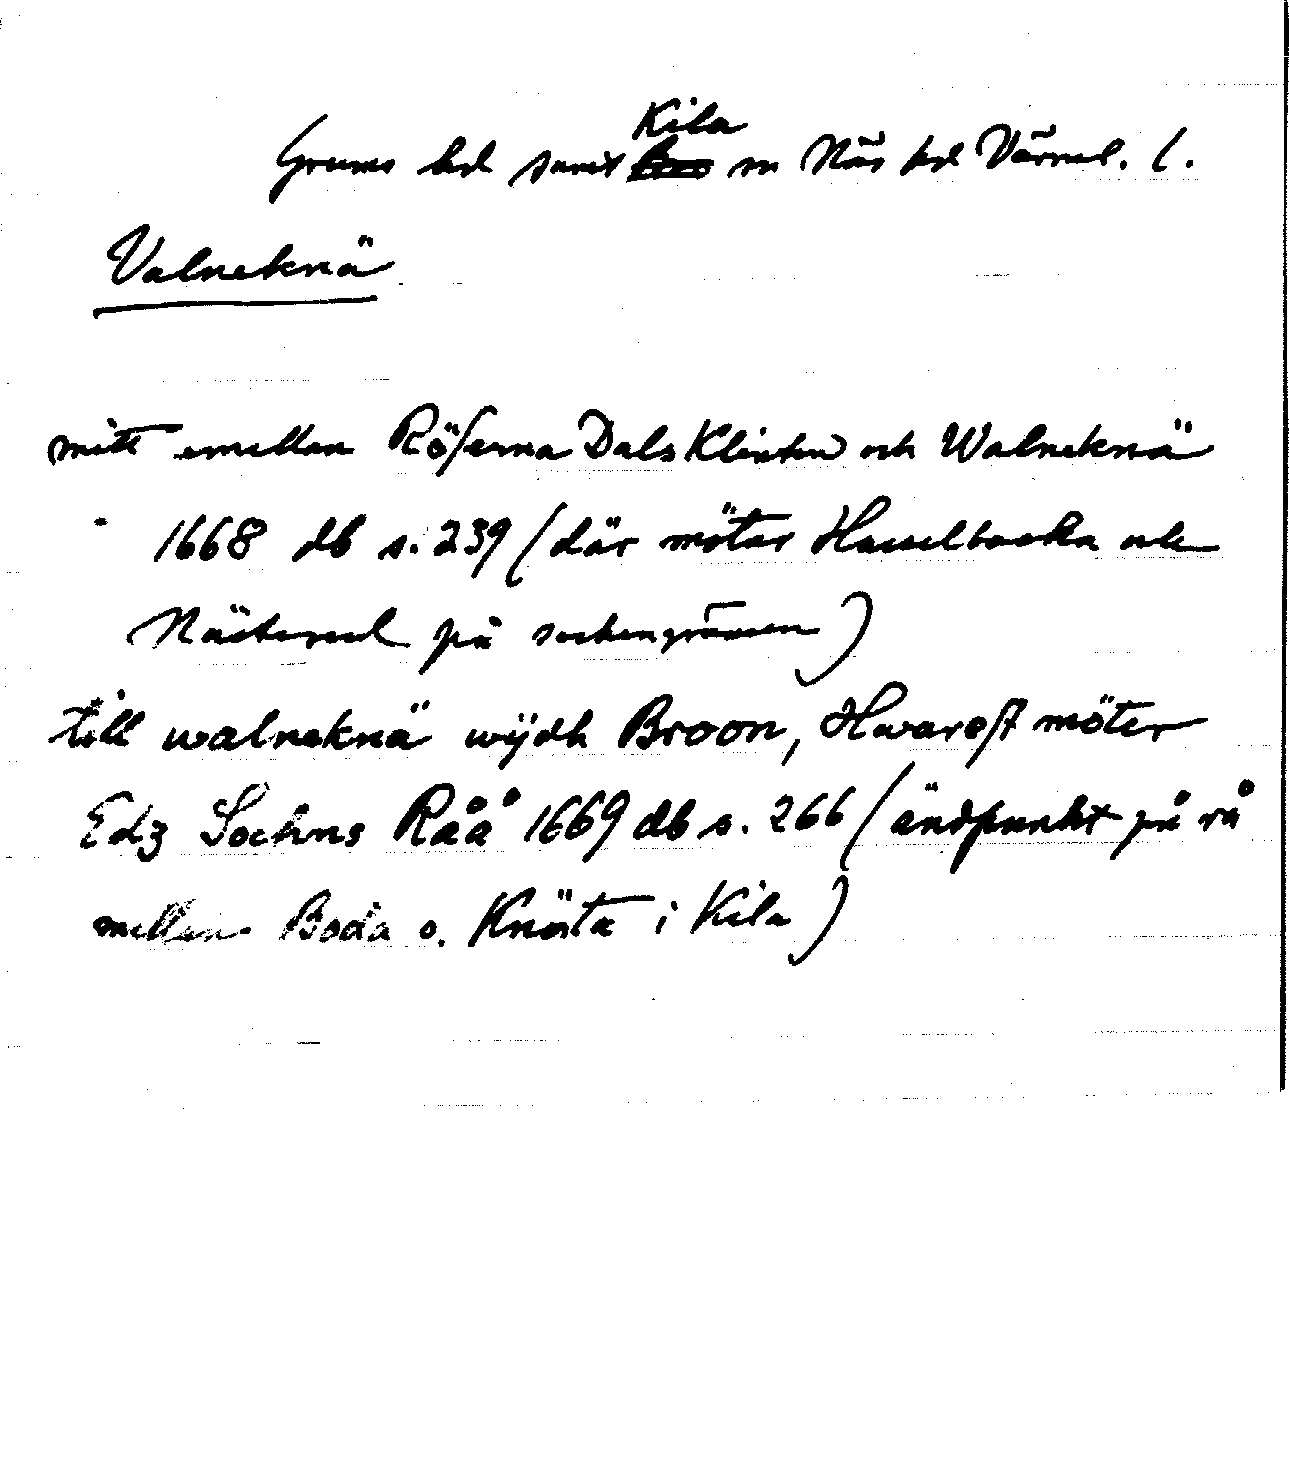 Kila
Grums hd samt sn Näs hd Värml. l.
Valneknä
mitt emellan Röserna Dals Klinten och Walneknä
1668 db s. 239 (där möter Hasselbacka och
Nästersel på sockengränsen)
till walneknä wijdh Broon, Hwarest möter
Edz Sochns Råå 1669 db s. 266 (ändpunkt på rå
mellan Boda o. Knösta i Kila)